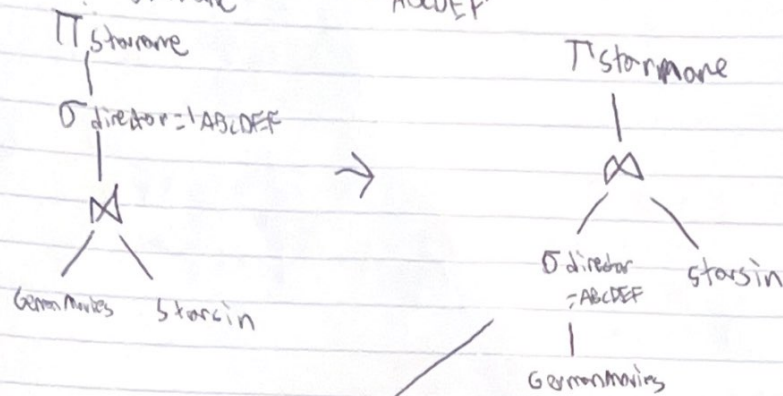 ABCDEF
π starname
σ director='ABCDEF
⋈
GermanMovies starsin
→
π starname
⋈
σ director
=ABCDEF
starsin
GermanMovies